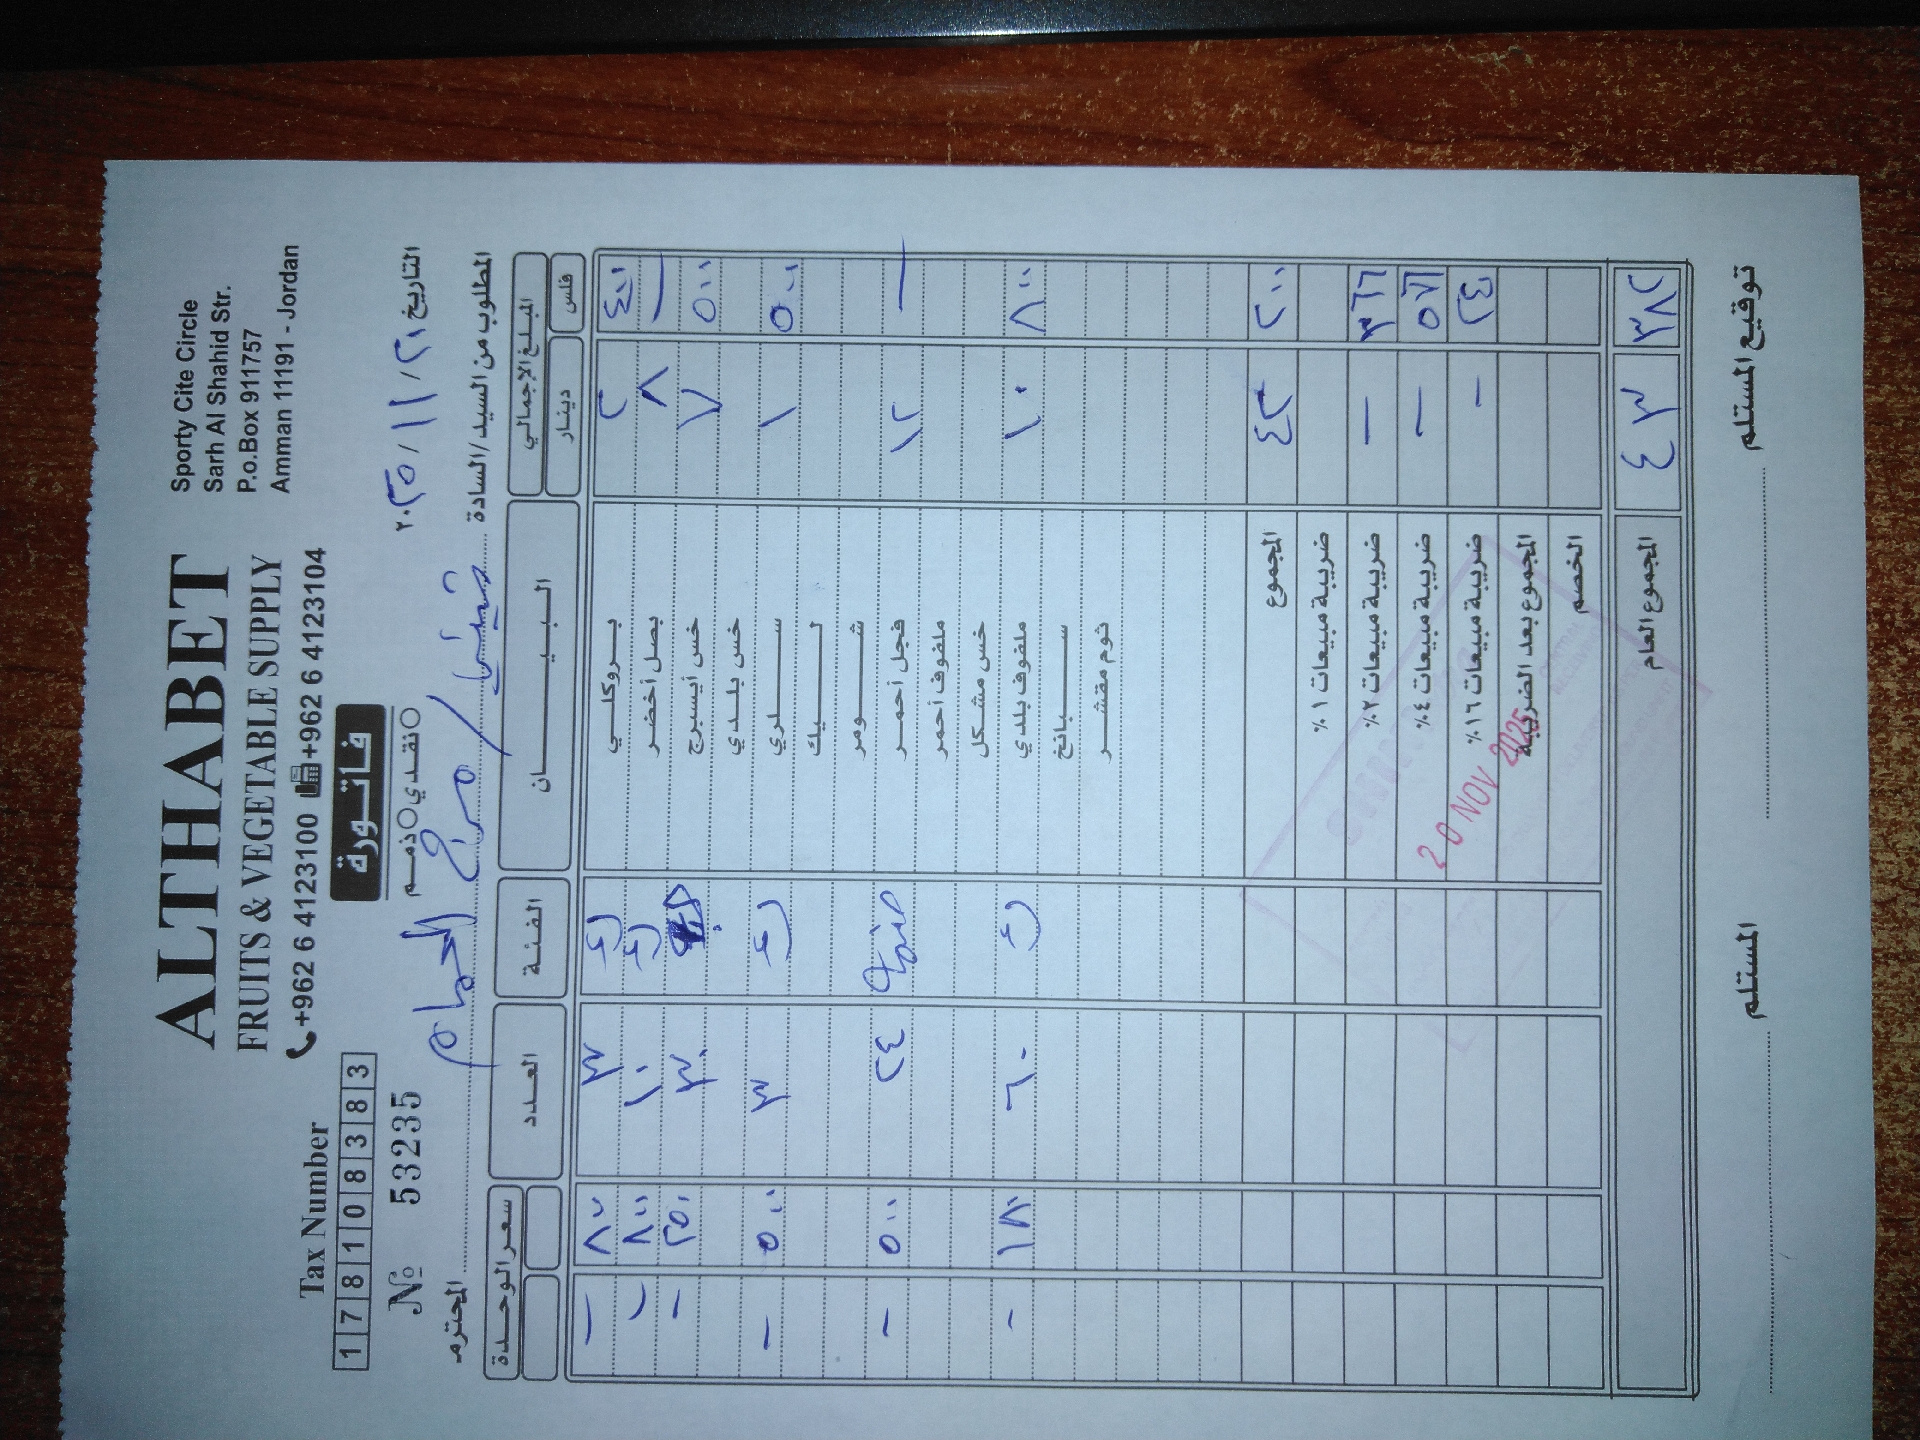 ALTHABET
FRUITS & VEGETABLE SUPPLY
+962 6 4123100 +962 6 4123104
Sporty Cite Circle
Sarh Al Shahid Str.
P.o.Box 911757
Amman 11191 - Jordan
Tax Number
1 7 8 1 0 8 3 8 3
فاتورة
نقدي ذمم
№ 53235
التاريخ ٢١ / ١١ / ٢٠٢٥
المطلوب من السيد/السادة / مرج الحمام المحترم
المبلغ الإجمالي البيـــان الفئة العدد سعر الوحدة
فلس دينار
٤٠٠ ٢ بروكلي ٣ ٨٠٠ -
— ٨ بصل أخضر ١٠ ٨٠٠ -
٥٠٠ ٧ خس أيسبرج ٣٠ ٢٥٠ -
خس بلدي
٥٠٠ ١ سلري ٣ ٥٠٠ -
ليك
شومر
— ١٢ فجل أحمر ٢٤ ٥٠٠ -
ملفوف أحمر
خس مشكل
٨٠٠ ١٠ ملفوف بلدي ٦٠ ١٨٠ -
سبانخ
ثوم مقشر
٢٠٠ ٤٢ المجموع
ضريبة مبيعات ١٪
٣٦٦ — ضريبة مبيعات ٢٪
٥٧٦ — ضريبة مبيعات ٤٪
٢٤٠ - ضريبة مبيعات ١٦٪
المجموع بعد الضريبة
الخصم
٣٨٢ ٤٣ المجموع العام
20 NOV 2025
توقيع المستلم
المستلم